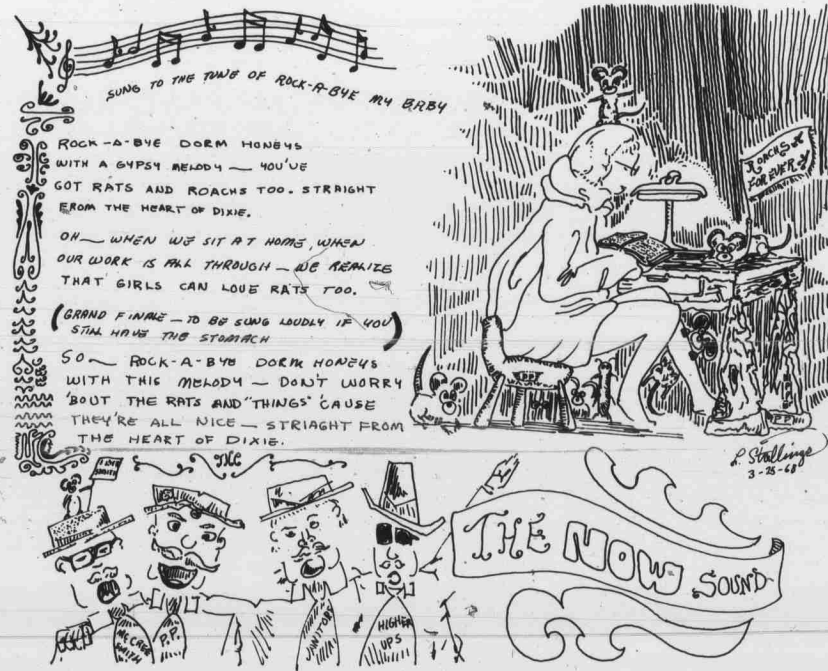 SUNG TO THE TUNE OF ROCK-A-BYE MY BABY
ROCK-A-BYE DORM HONEYS
WITH A GYPSY MELODY — YOU'VE
GOT RATS AND ROACHS TOO. STRAIGHT
FROM THE HEART OF DIXIE.
OH — WHEN WE SIT AT HOME, WHEN
OUR WORK IS ALL THROUGH — WE REALIZE
THAT GIRLS CAN LOVE RATS TOO.
(GRAND FINALE — TO BE SUNG LOUDLY IF YOU
STILL HAVE THE STOMACH)
SO — ROCK-A-BYE DORM HONEYS
WITH THIS MELODY — DON'T WORRY
'BOUT THE RATS AND "THINGS" 'CAUSE
THEY'RE ALL NICE — STRIAGHT FROM
THE HEART OF DIXIE.
ROACHS
FOREVER
P.P.
L. Stallings
3-25-68
THE
P.P.
JANITORS
HIGHER
UPS
THE NOW SOUND